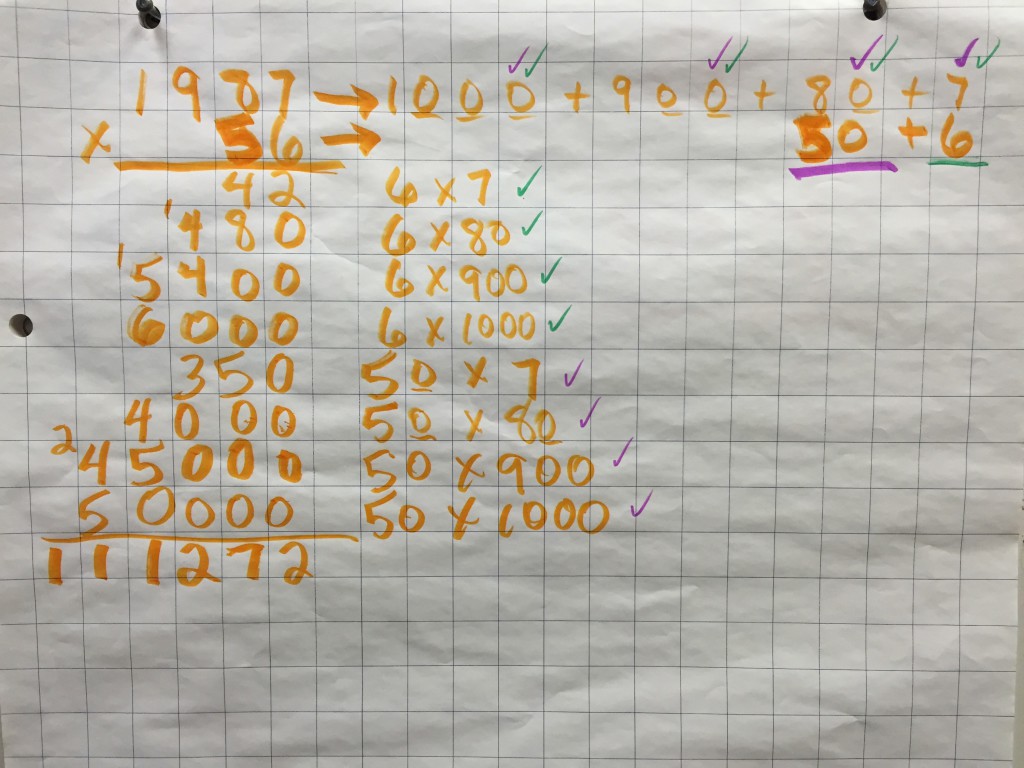 1987 → 1000 + 900 + 80 + 7
x 56 → 50 + 6
42 6 x 7 ✓
1 480 6 x 80 ✓
1 5400 6 x 900 ✓
6000 6 x 1000 ✓
350 50 x 7 ✓
4000 50 x 80 ✓
2 45000 50 x 900 ✓
50000 50 x 1000 ✓
111272